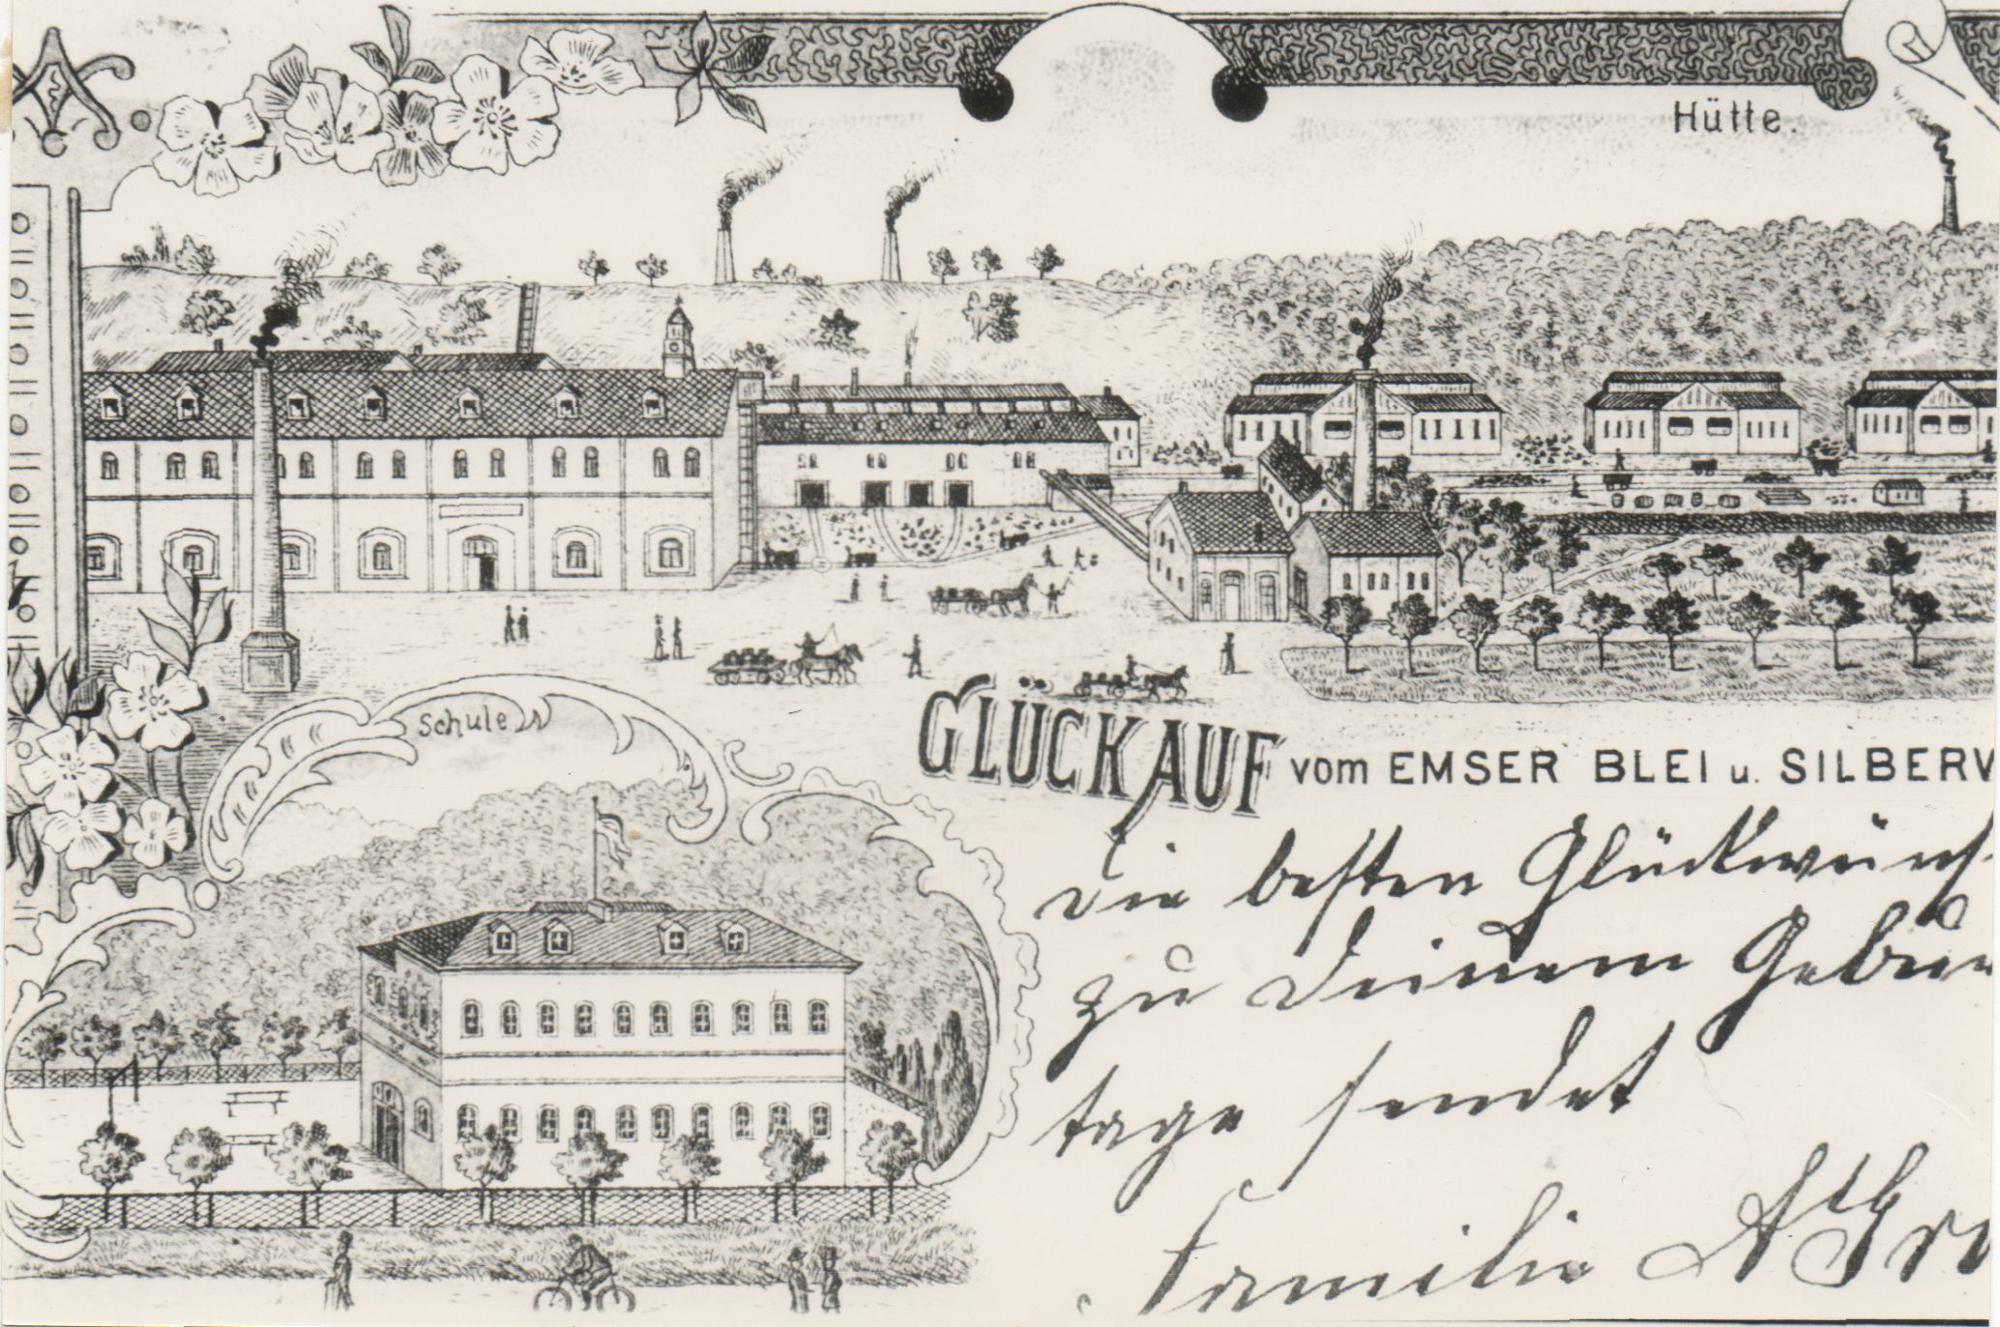 Hütte.
Schule
GLÜCKAUF vom EMSER BLEI u. SILBERV
Die besten Glückwünsch
zu Deinem Gebur
tage sendet
Familie